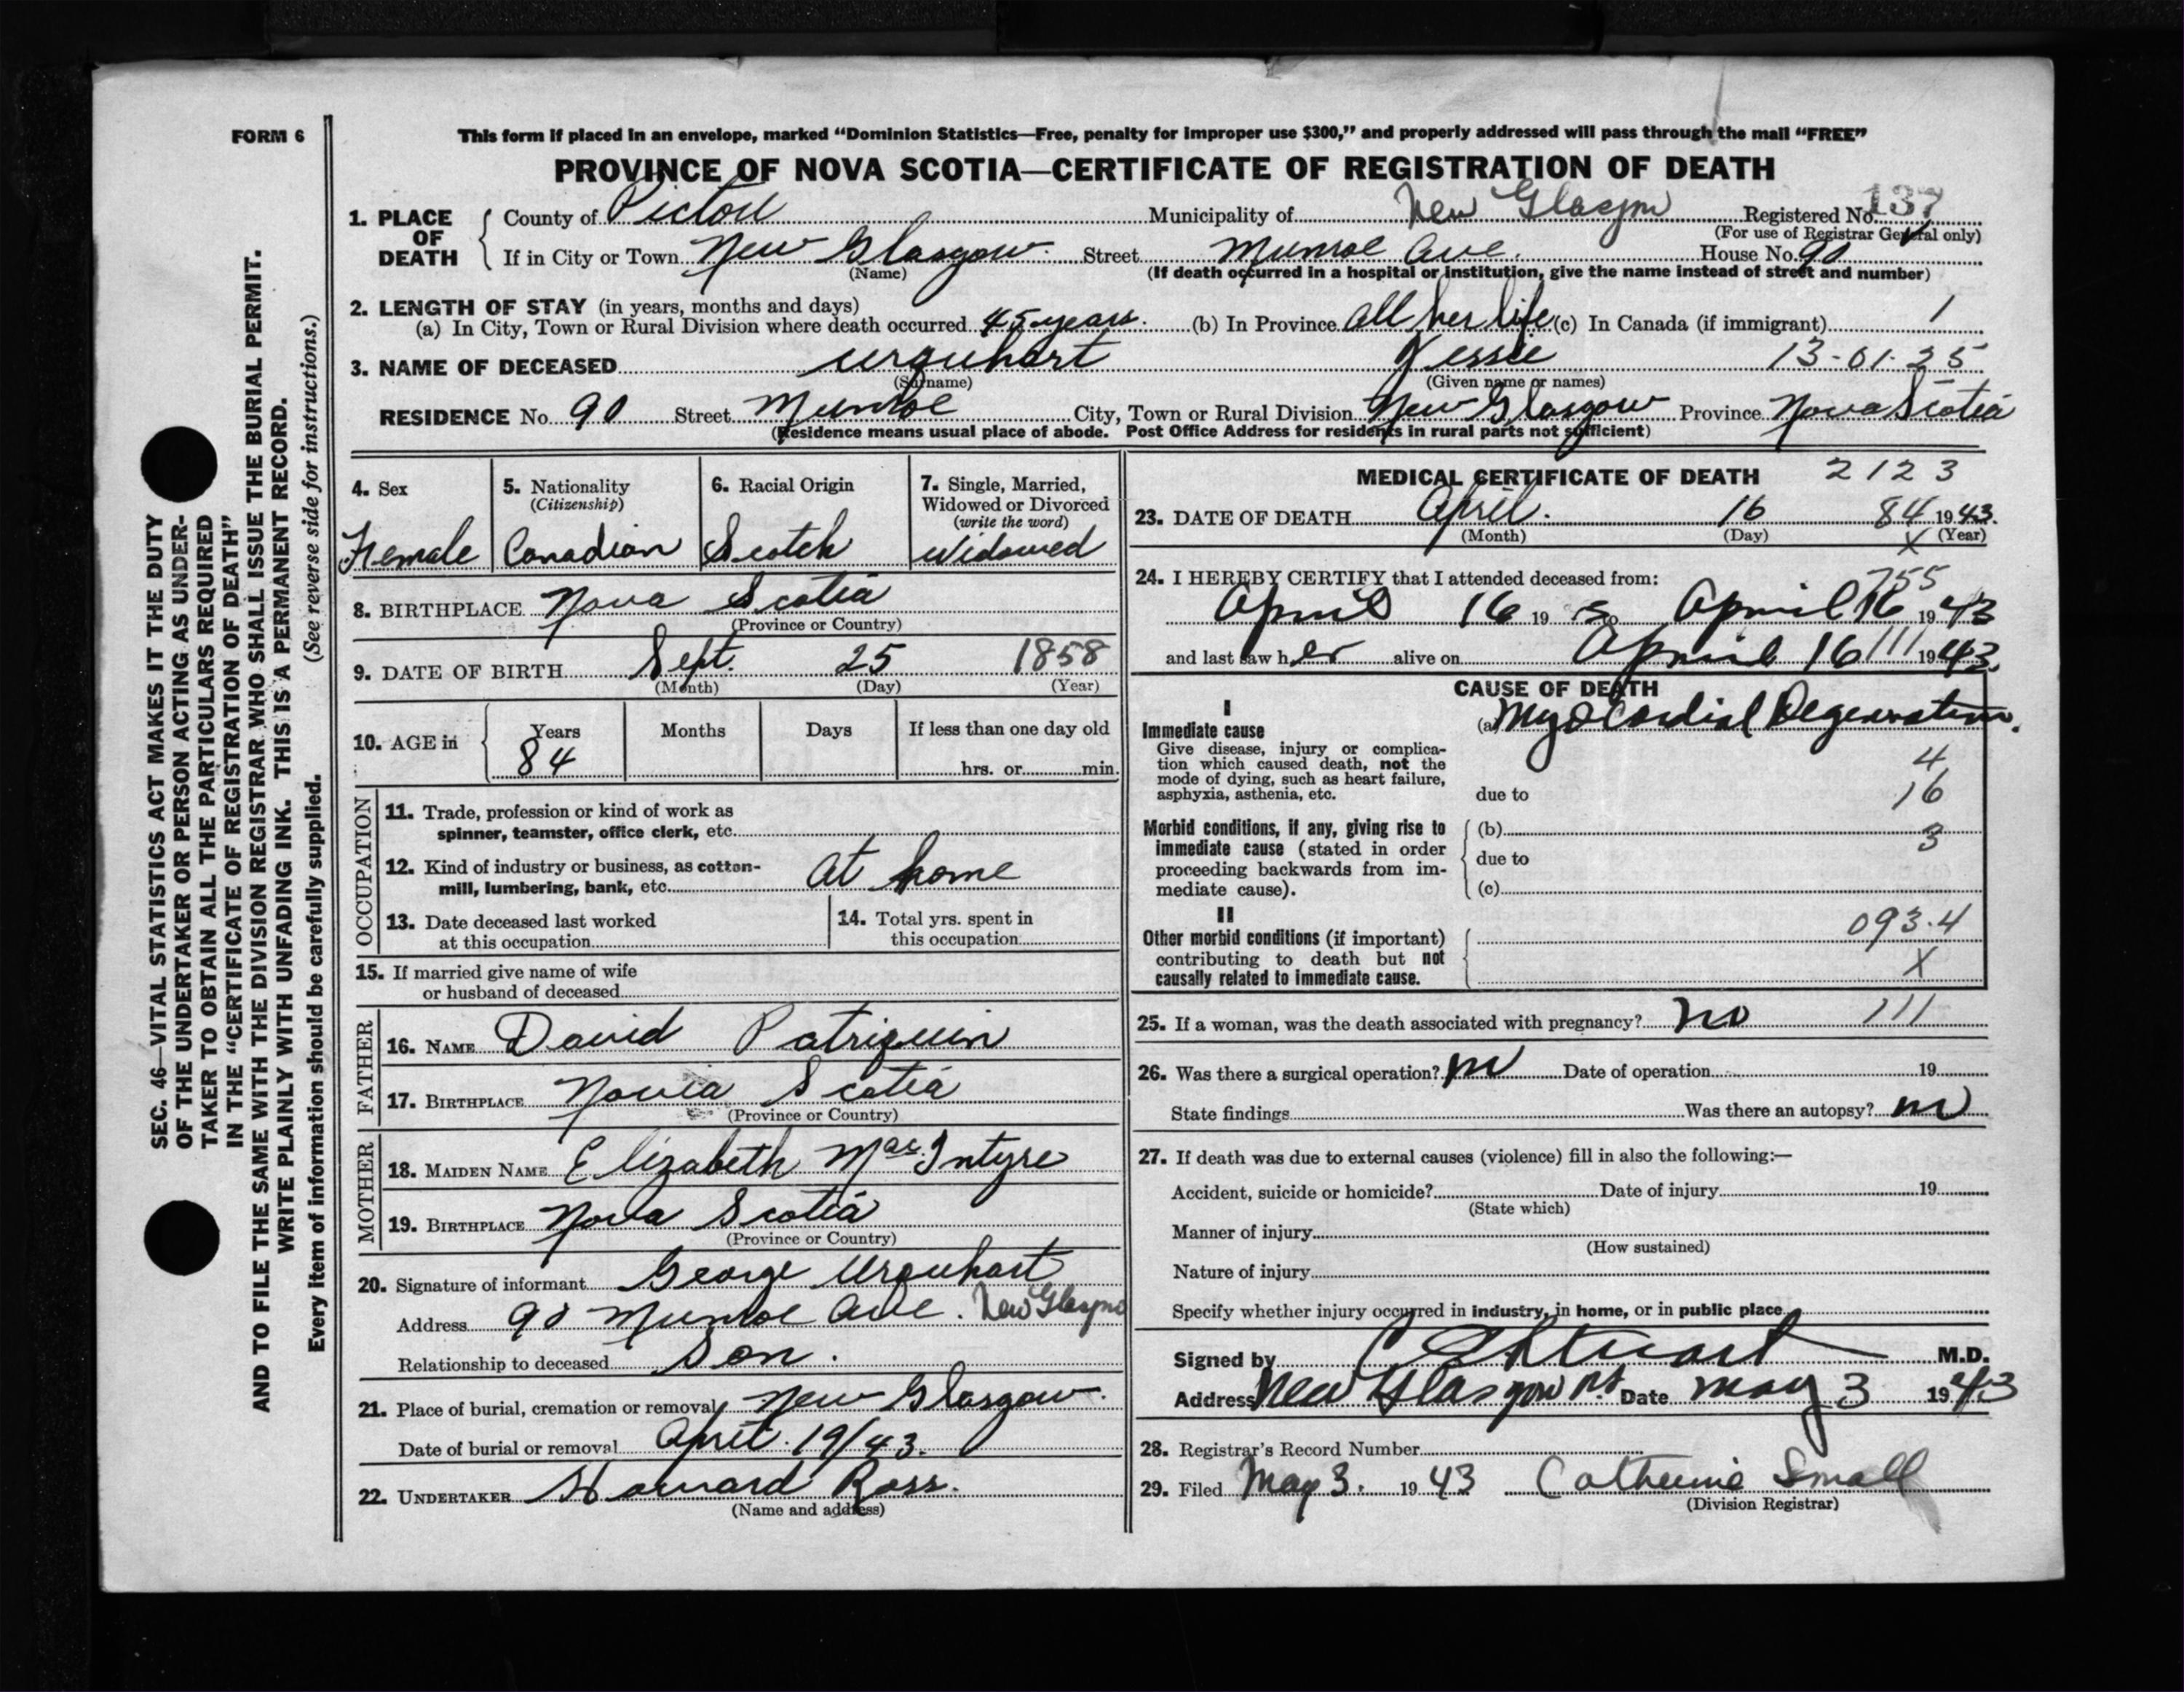 FORM 6
This form if placed in an envelope, marked "Dominion Statistics—Free, penalty for improper use $300," and properly addressed will pass through the mail "FREE"
PROVINCE OF NOVA SCOTIA—CERTIFICATE OF REGISTRATION OF DEATH
SEC. 46—VITAL STATISTICS ACT MAKES IT THE DUTY
OF THE UNDERTAKER OR PERSON ACTING AS UNDER-
TAKER TO OBTAIN ALL THE PARTICULARS REQUIRED
IN THE "CERTIFICATE OF REGISTRATION OF DEATH"
AND TO FILE THE SAME WITH THE DIVISION REGISTRAR WHO SHALL ISSUE THE BURIAL PERMIT.
WRITE PLAINLY WITH UNFADING INK. THIS IS A PERMANENT RECORD.
Every item of information should be carefully supplied. (See reverse side for instructions.)
1. PLACE OF DEATH
County of Pictou Municipality of New Glasgow Registered No. 137
(For use of Registrar General only)
If in City or Town New Glasgow. Street Munroe Ave. House No. 90
(Name) (If death occurred in a hospital or institution, give the name instead of street and number)
2. LENGTH OF STAY (in years, months and days)
(a) In City, Town or Rural Division where death occurred 45 years. (b) In Province All her life (c) In Canada (if immigrant) 1
3. NAME OF DECEASED Urquhart Jessie 13-01-25
(Surname) (Given name or names)
RESIDENCE No. 90 Street Munroe City, Town or Rural Division New Glasgow Province Nova Scotia
(Residence means usual place of abode. Post Office Address for residents in rural parts not sufficient)
4. Sex Female
5. Nationality (Citizenship) Canadian
6. Racial Origin Scotch
7. Single, Married, Widowed or Divorced (write the word) Widowed
8. BIRTHPLACE Nova Scotia
(Province or Country)
9. DATE OF BIRTH Sept. 25 1858
(Month) (Day) (Year)
10. AGE in Years 84 Months Days If less than one day old
hrs. or min.
OCCUPATION
11. Trade, profession or kind of work as
spinner, teamster, office clerk, etc.
12. Kind of industry or business, as cotton-
mill, lumbering, bank, etc. At home
13. Date deceased last worked
at this occupation
14. Total yrs. spent in
this occupation
15. If married give name of wife
or husband of deceased
FATHER
16. NAME David Patriquin
17. BIRTHPLACE Novia Scotia
(Province or Country)
MOTHER
18. MAIDEN NAME Elizabeth MacIntyre
19. BIRTHPLACE Nova Scotia
(Province or Country)
20. Signature of informant George Urquhart
Address 90 Munroe Ave. New Glasgow
Relationship to deceased Son.
21. Place of burial, cremation or removal New Glasgow.
Date of burial or removal April 19/43.
22. UNDERTAKER Howard Ross.
(Name and address)
MEDICAL CERTIFICATE OF DEATH 2123
23. DATE OF DEATH April. 16 84 1943.
(Month) (Day) X (Year)
24. I HEREBY CERTIFY that I attended deceased from: 755
April 16 19 to April 16 1943
and last saw her alive on April 16 111 1943.
CAUSE OF DEATH
I
Immediate cause
Give disease, injury or complica-
tion which caused death, not the
mode of dying, such as heart failure,
asphyxia, asthenia, etc.
(a) Myocardial Degeneration.
4
due to 16
Morbid conditions, if any, giving rise to
immediate cause (stated in order
proceeding backwards from im-
mediate cause).
(b) 3
due to
(c)
II
Other morbid conditions (if important)
contributing to death but not
causally related to immediate cause.
093.4
X
25. If a woman, was the death associated with pregnancy? no 111
26. Was there a surgical operation? no Date of operation 19
State findings Was there an autopsy? no
27. If death was due to external causes (violence) fill in also the following:—
Accident, suicide or homicide? Date of injury 19
(State which)
Manner of injury
(How sustained)
Nature of injury
Specify whether injury occurred in industry, in home, or in public place
Signed by Stuart M.D.
Address New Glasgow NS Date May 3 1943
28. Registrar's Record Number
29. Filed May 3. 1943 Catherine Small
(Division Registrar)